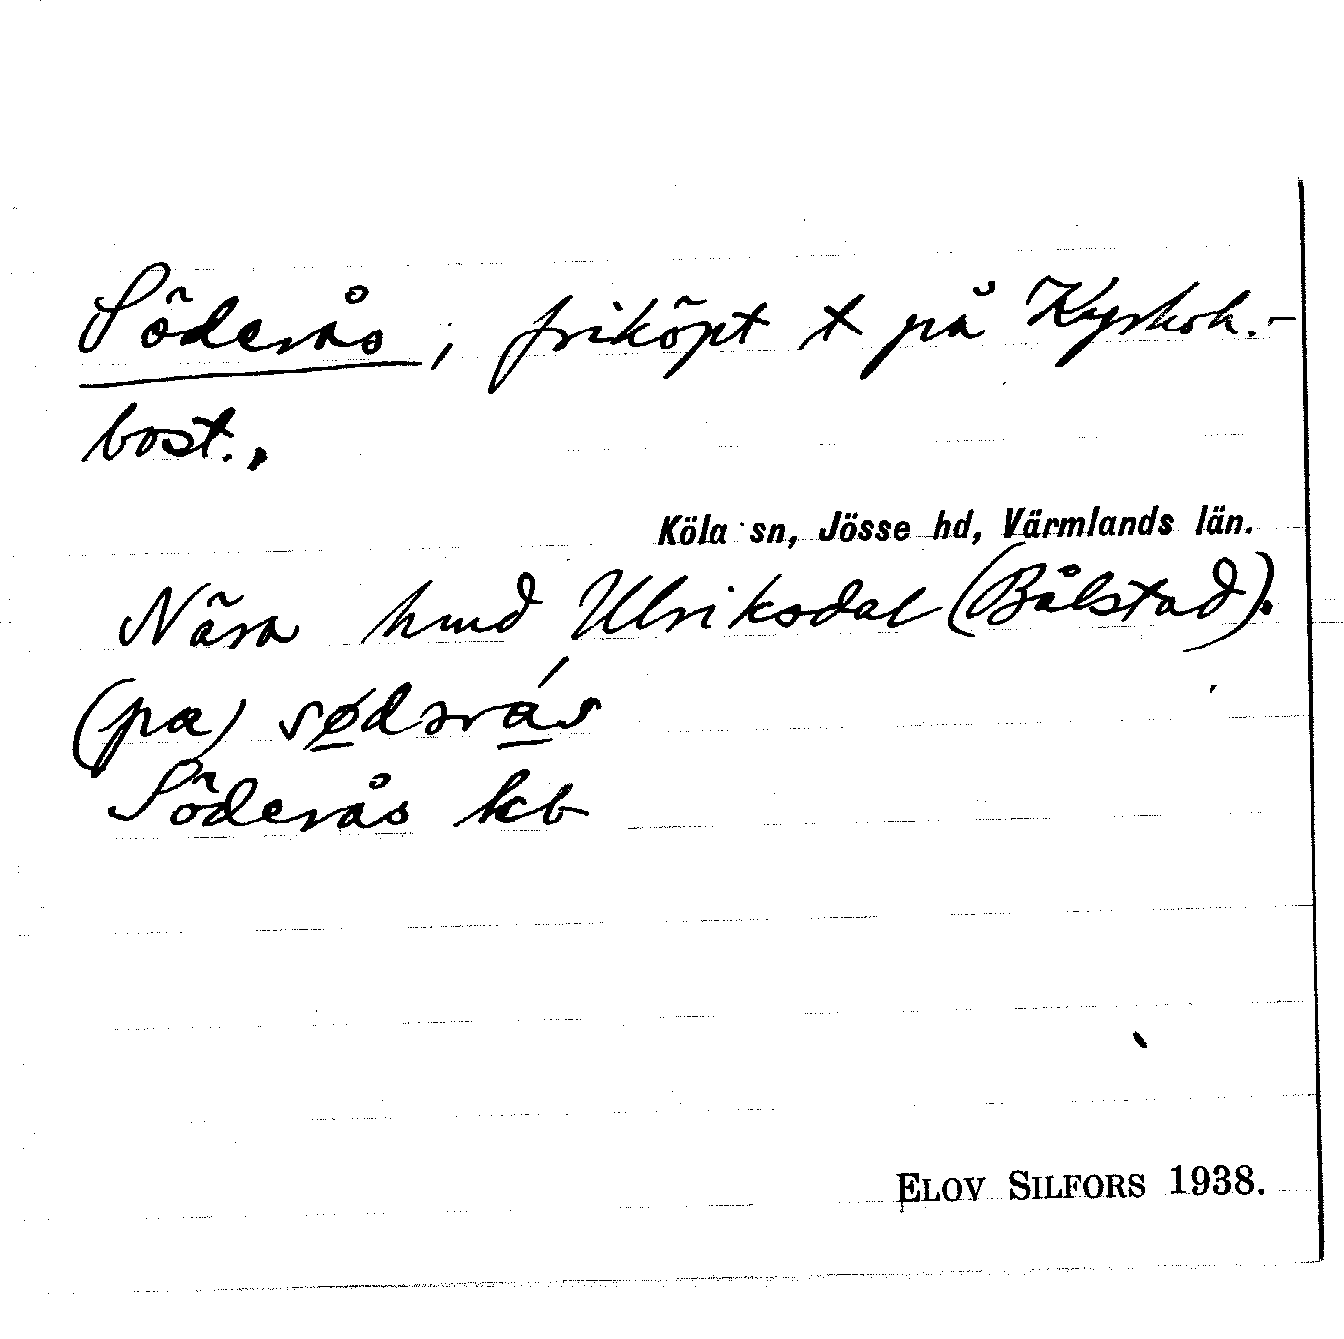 Söderås, friköpt t på Kyrkoh.-
bost.,
Köla sn, Jösse hd, Värmlands län.
Nära hmd Ulriksdal (Bålstad).
(pα)
Söderås kb
ELOV SILFORS 1938.